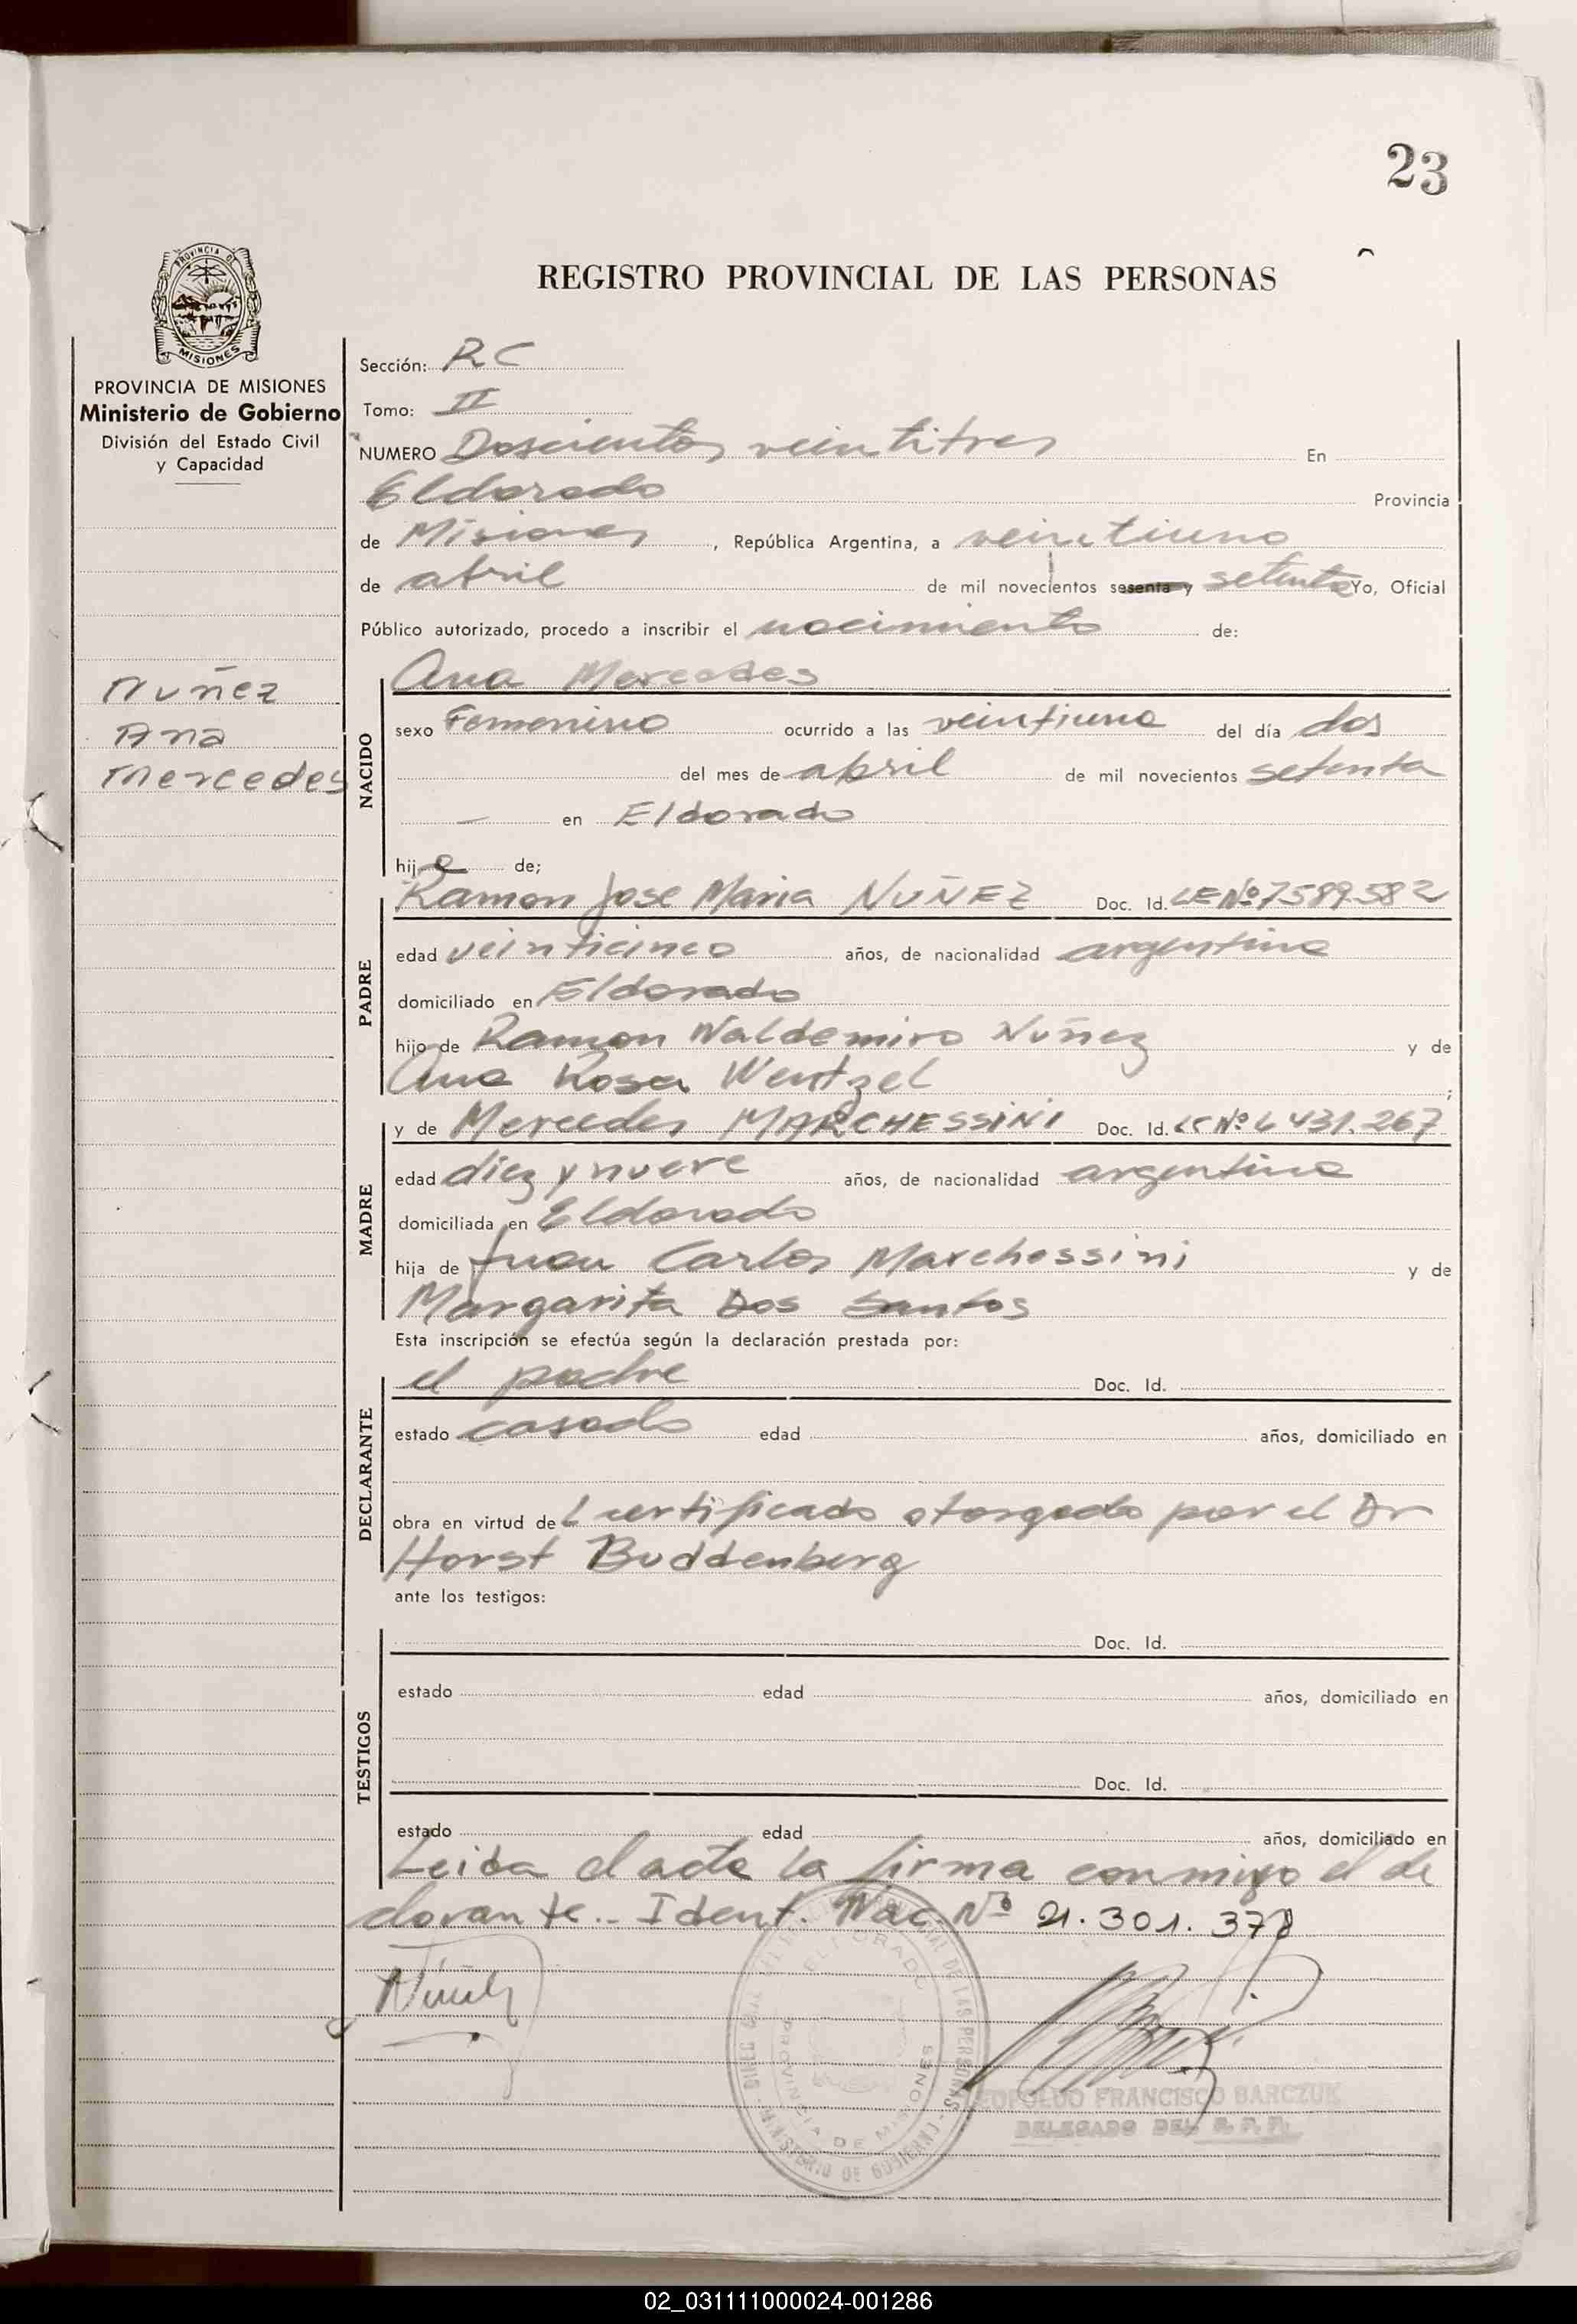 23
REGISTRO PROVINCIAL DE LAS PERSONAS
PROVINCIA DE
MISIONES
PROVINCIA DE MISIONES
Ministerio de Gobierno
División del Estado Civil
y Capacidad
Nuñez
Ana
Mercedes
Sección: RC
Tomo: II
NUMERO Doscientos veintitres En
Eldorado Provincia
de Misiones, República Argentina, a veintiuno
de abril de mil novecientos sesenta y setenta Yo, Oficial
Público autorizado, procedo a inscribir el nacimiento de:
NACIDO
Ana Mercedes
sexo Femenino ocurrido a las veintiuna del día dos
del mes de abril de mil novecientos setenta
— en Eldorado
hija de;
PADRE
Ramon Jose Maria NUÑEZ Doc. Id. LE Nº 7589582
edad veinticinco años, de nacionalidad argentina
domiciliado en Eldorado
hijo de Ramon Waldemiro Nuñez y de
Ana Rosa Wentzel ;
MADRE
y de Mercedes MARCHESSINI Doc. Id. LC Nº 6 431.267
edad diez y nueve años, de nacionalidad argentina
domiciliada en Eldorado
hija de Juan Carlos Marchessini y de
Margarita Dos Santos
Esta inscripción se efectúa según la declaración prestada por:
DECLARANTE
el padre Doc. Id.
estado casado edad años, domiciliado en
obra en virtud del certificado otorgado por el Dr
Horst Buddenberg
ante los testigos:
TESTIGOS
Doc. Id.
estado edad años, domiciliado en
Doc. Id.
estado edad años, domiciliado en
Leida el acta la firma conmigo el de
clarante.- Ident. Nac. Nº 21.301.378
ELDORADO
PROVINCIA DE MISIONES
DE LAS PERSONAS
MINISTERIO DE GOBIERNO
LEOPOLDO FRANCISCO BARCZUK
DELEGADO DEL R. P. P.
02_031111000024-001286